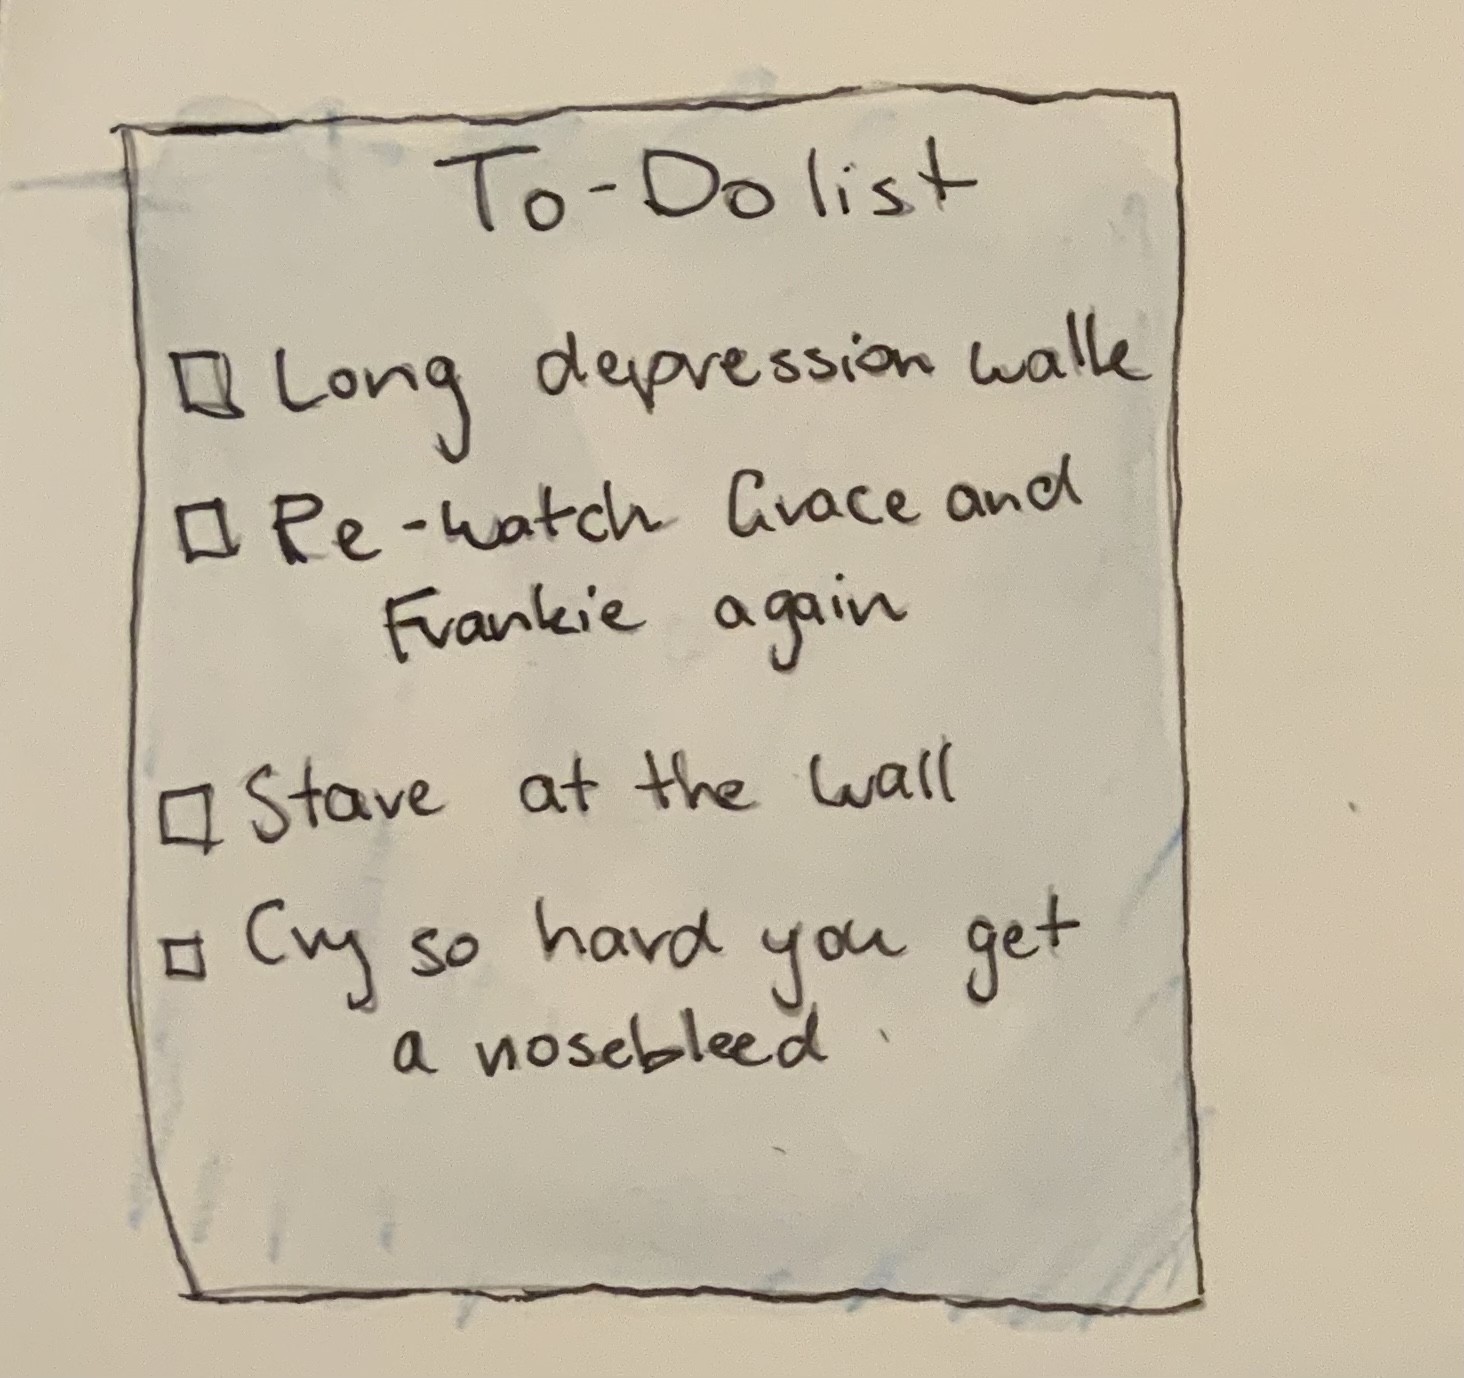 To-Do list
Long depression walk
Re-watch Grace and
Frankie again
Stare at the wall
Cry so hard you get
a nosebleed